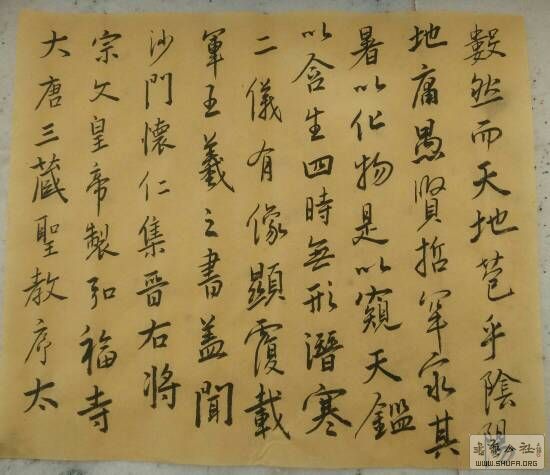 大唐三藏聖教序太
宗文皇帝製弘福寺
沙門懷仁集晉右將
軍王羲之書蓋聞
二儀有像顯覆載
以含生四時無形潛寒
暑以化物是以窺天鑑
地庸愚賢哲罕窮其
數然而天地苞乎陰陽
WWW.SHUFA.ORG